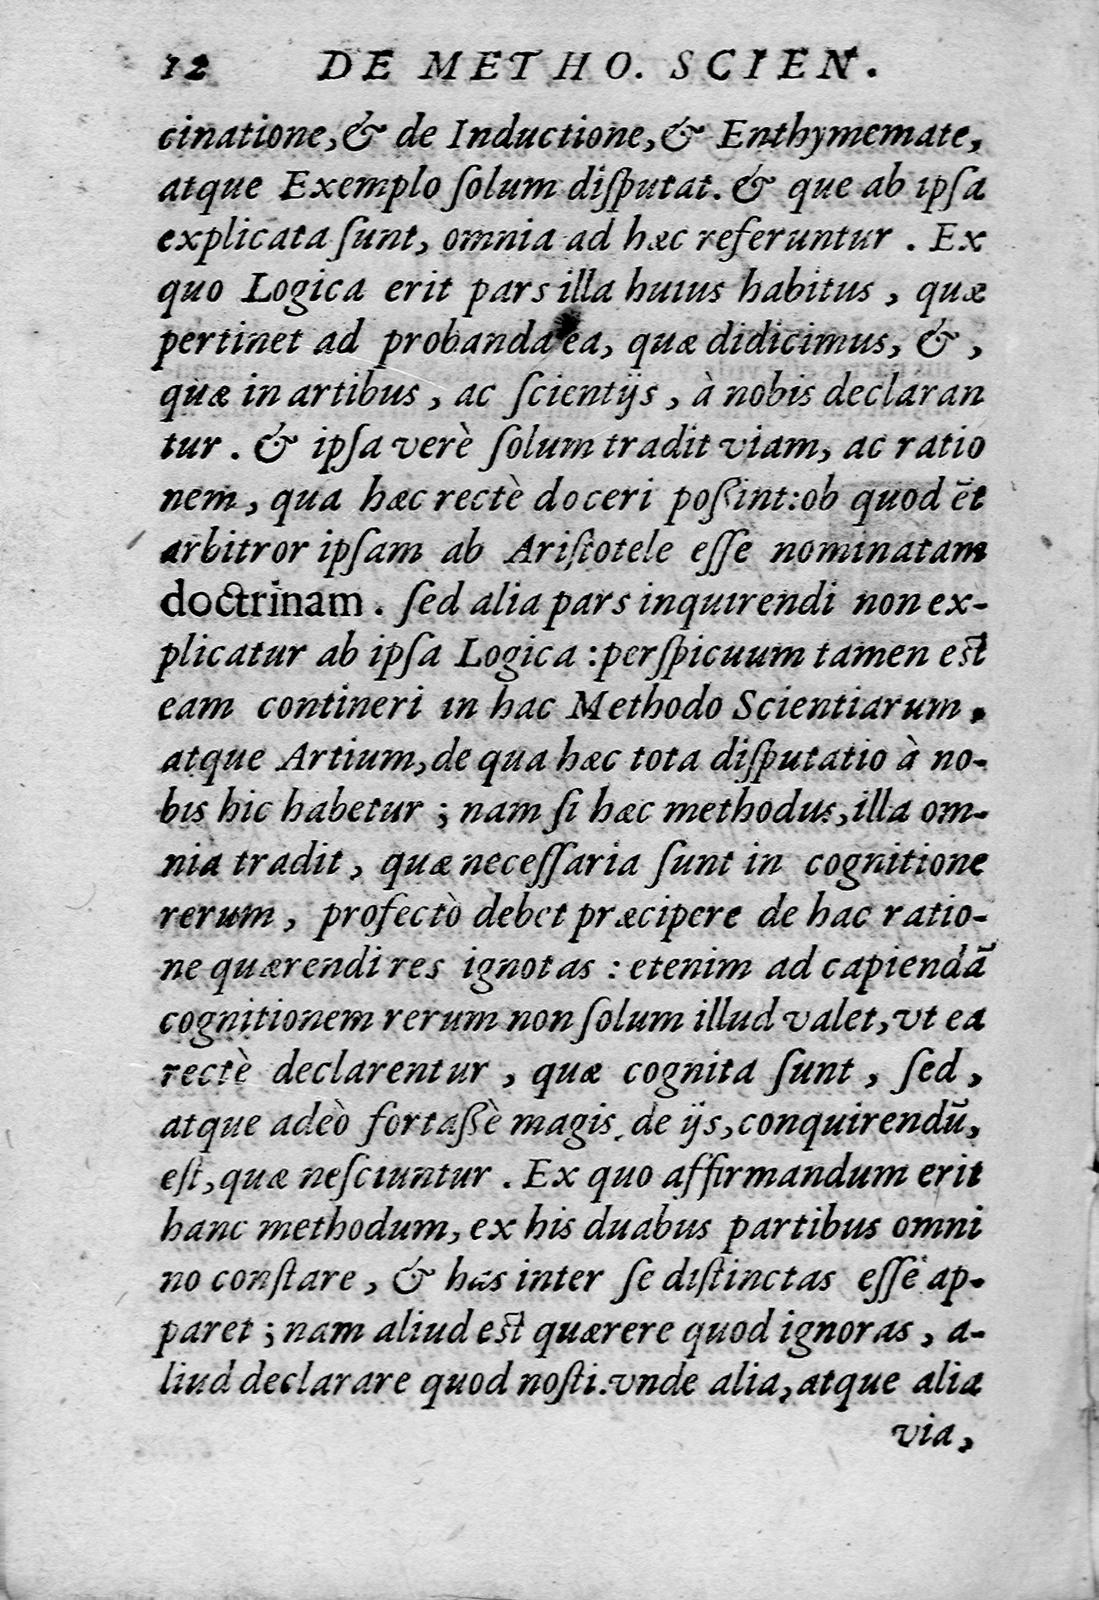 12 DE METHO. SCIEN.
cinatione,& de Inductione,& Enthymemate,
atque Exemplo ſolum diſputat. & que ab ipſa
explicata ſunt, omnia ad hæc referuntur . Ex
quo Logica erit pars illa huius habitus , quæ
pertinet ad probanda ea, quæ didicimus, & ,
quæ in artibus , ac ſcientijs , à nobis declaran
tur . & ipſa verè ſolum tradit viam, ac ratio
nem, qua hæc rectè doceri poßint:ob quod ēt
arbitror ipſam ab Ariſtotele eſſe nominatam
doctrinam . ſed alia pars inquirendi non ex-
plicatur ab ipſa Logica :perſpicuum tamen est
eam contineri in hac Methodo Scientiarum,
atque Artium,de qua hæc tota diſputatio à no-
bis hic habetur ; nam ſi hæc methodus,illa om-
nia tradit , quæ neceſſaria ſunt in cognitione
rerum , profectò debet præcipere de hac ratio-
ne quærendi res ignotas : etenim ad capiendā
cognitionem rerum non ſolum illud valet,vt ea
rectè declarentur , quæ cognita ſunt , ſed ,
atque adeò fortaßè magis de ijs,conquirendū,
eſt,quæ neſciuntur . Ex quo affirmandum erit
hanc methodum, ex his duabus partibus omni
no conſtare , & has inter ſe diſtinctas eſſe ap-
paret ; nam aliud est quærere quod ignoras , a-
liud declarare quod noſti.vnde alia, atque alia
via,